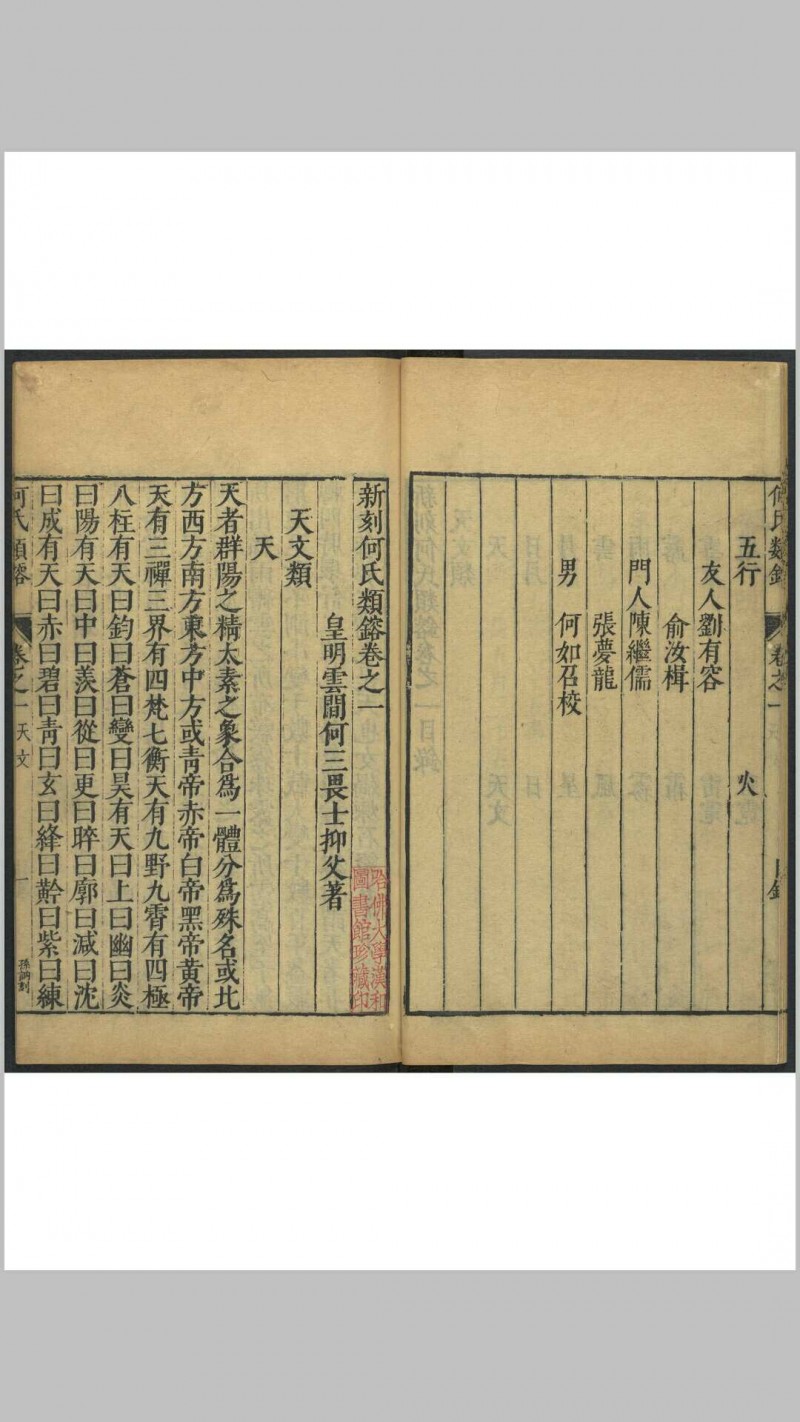 五行 火
友人劉有容
俞汝楫
門人陳繼儒
張夢龍
男 何如召校
新刻何氏類鎔卷之一
皇明雲間何三畏士抑父著
天文類
天
天者群陽之精太素之象合爲一體分爲殊名或北
方西方南方東方中方或青帝赤帝白帝黑帝黃帝
天有三禪三界有四梵七衡天有九野九霄有四極
八柱有天曰鈞曰蒼曰變曰昊有天曰上曰幽曰炎
曰陽有天曰中曰羨曰從曰更曰晬曰廓曰減曰沈
曰成有天曰赤曰碧曰青曰玄曰絳曰黅曰紫曰練
何氏類鎔 卷之一 天文 一
哈佛大學漢和
圖書館珍藏印